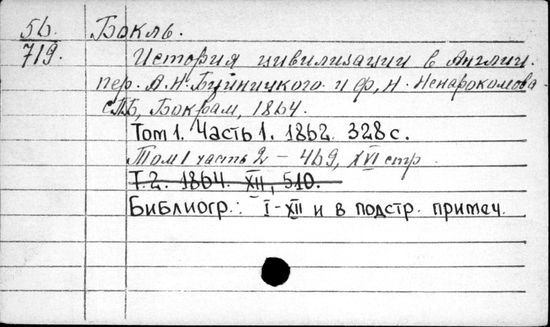 56. Бокль.
719.
История цивилизации в Англии.
пер. А.Н. Буйницкого и Ф. Н. Ненарокомова
СПБ, Бокрам, 1864.
Том 1. Часть 1. 1862. 328 с.
Том 1 часть 2 — 469, XVI стр
Т. 2. 1864. XII, 510.
Библиогр.: I-XII и в подстр. примеч.